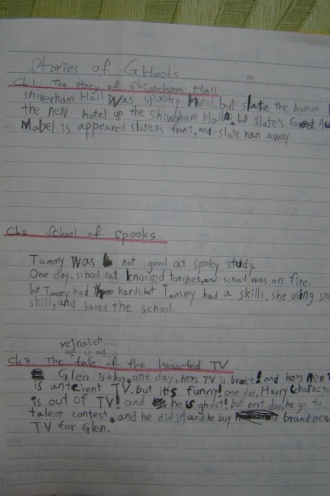 Stories of GHosts
Ch1. The story of Shiverham Hall
shiverham Hall was spooky hotel, but slate the human
the new hotel up the shiverham Hall, but slate's
Mabel is appeared slate's front, and slate ran away.
Ch2. School of Spooks
Tammy was not good at spooky study.
One day, school cat knocked torches, and school was on fire.
but Tammy had hard, but Tammy had a skills, she using
skill, and saved the school.
Ch3. The tale of the hounted TV
Glen baby, one day, hers TV is broke! and hers new
is antient TV. but it's funny! one day, Harry character
is out of TV! and he is ghost! but next day, he go to
talent contest, and he did it! and he buy brand new
TV for Glen.